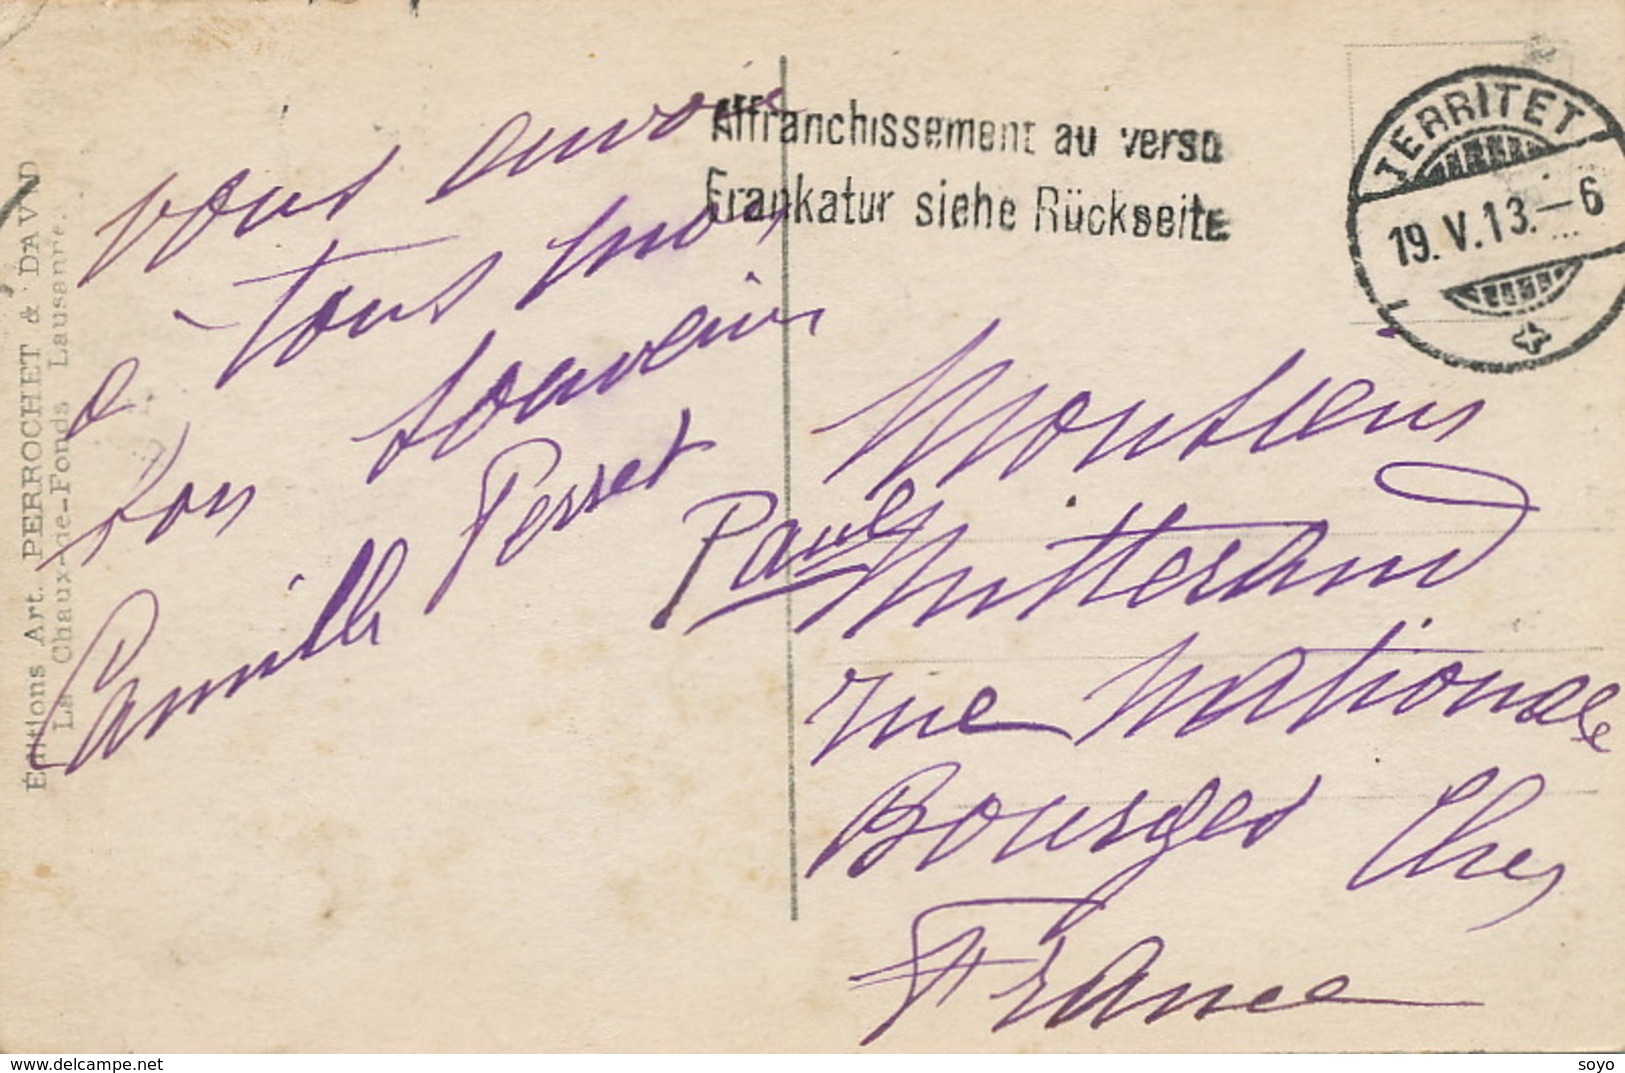 Éditions Art. PERROCHET & DAVID
La Chaux-de-Fonds Lausanne.
vous envoie
a tous mes
bons souvenirs
Camille Perret
Affranchissement au verso
Frankatur siehe Rückseite
TERRITET
19.V.13.–6
Monsieur
Paul Mitterand
rue Nationale
Bourges Cher
France
www.delcampe.net
soyo